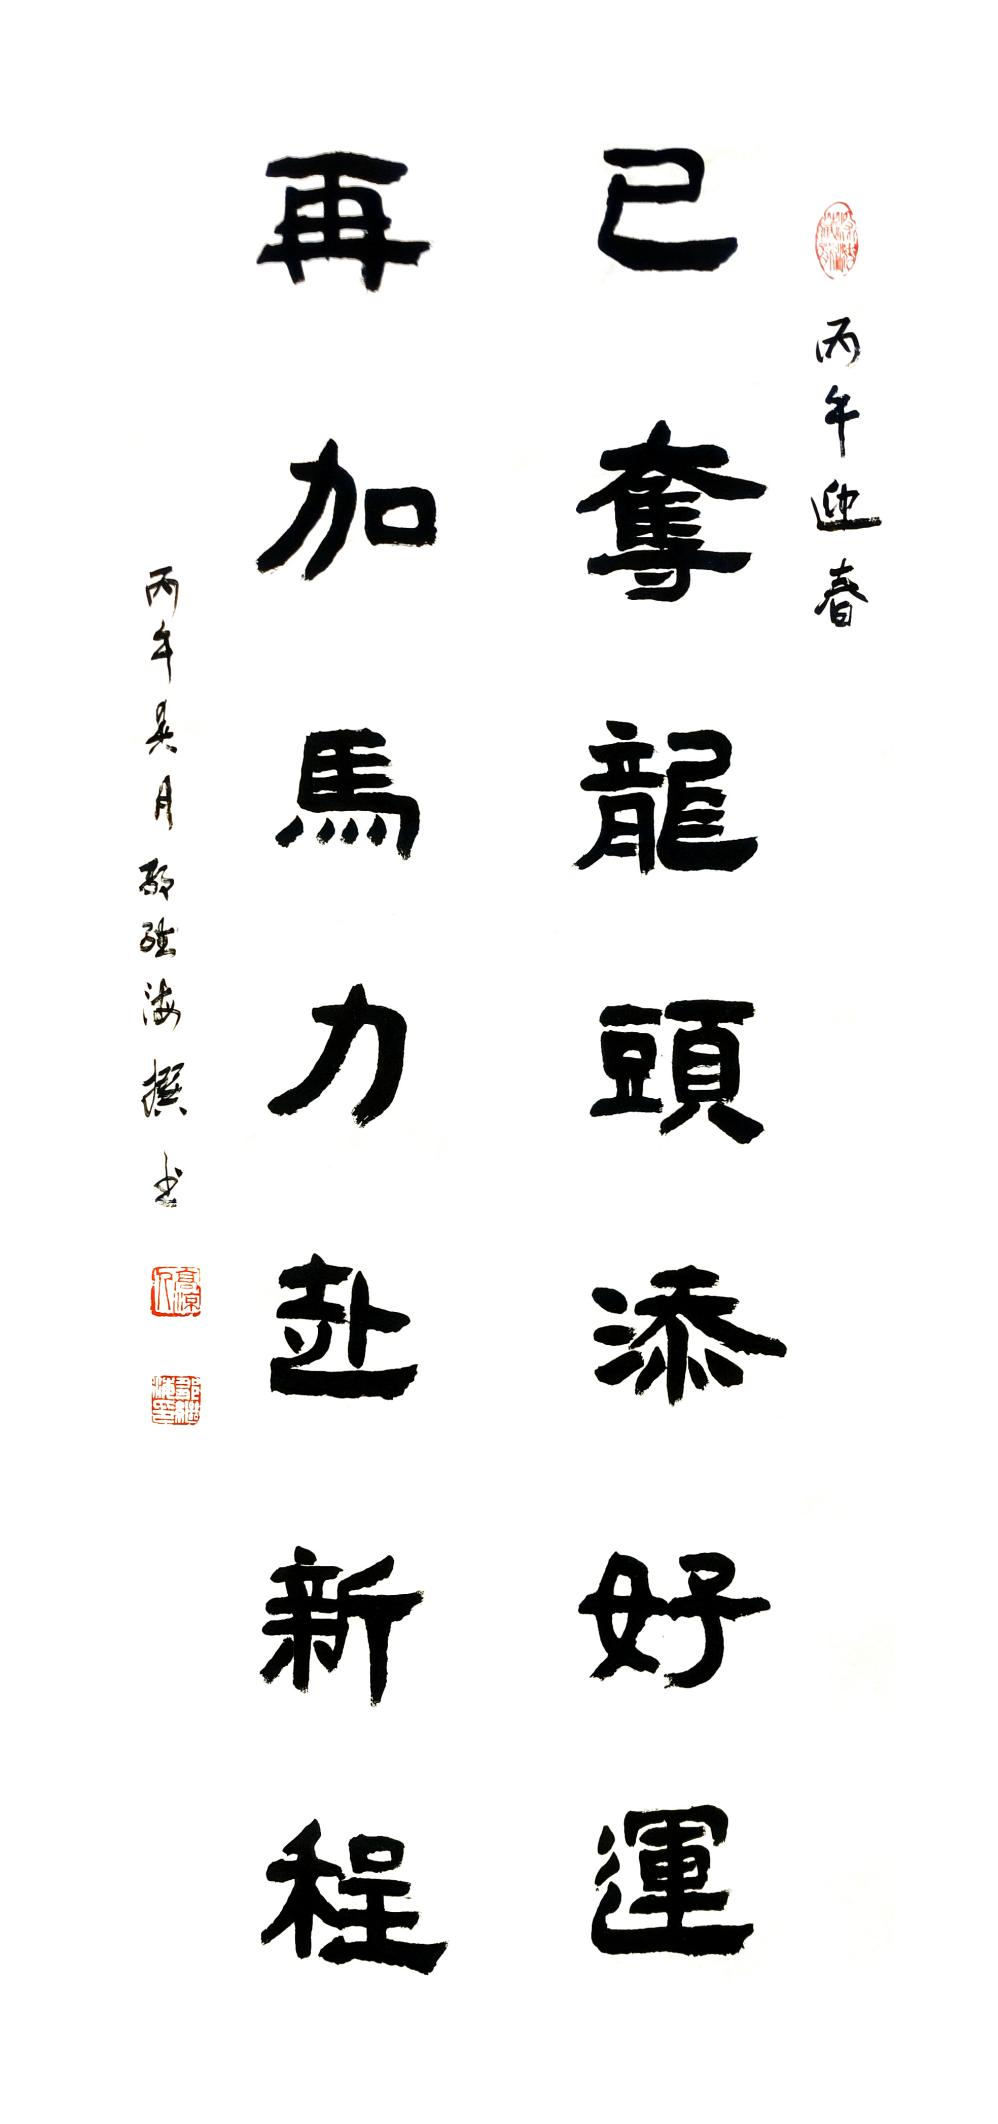 丙午迎春
已奪龍頭添好運
再加馬力赴新程
丙午
月
海撰书
高涼